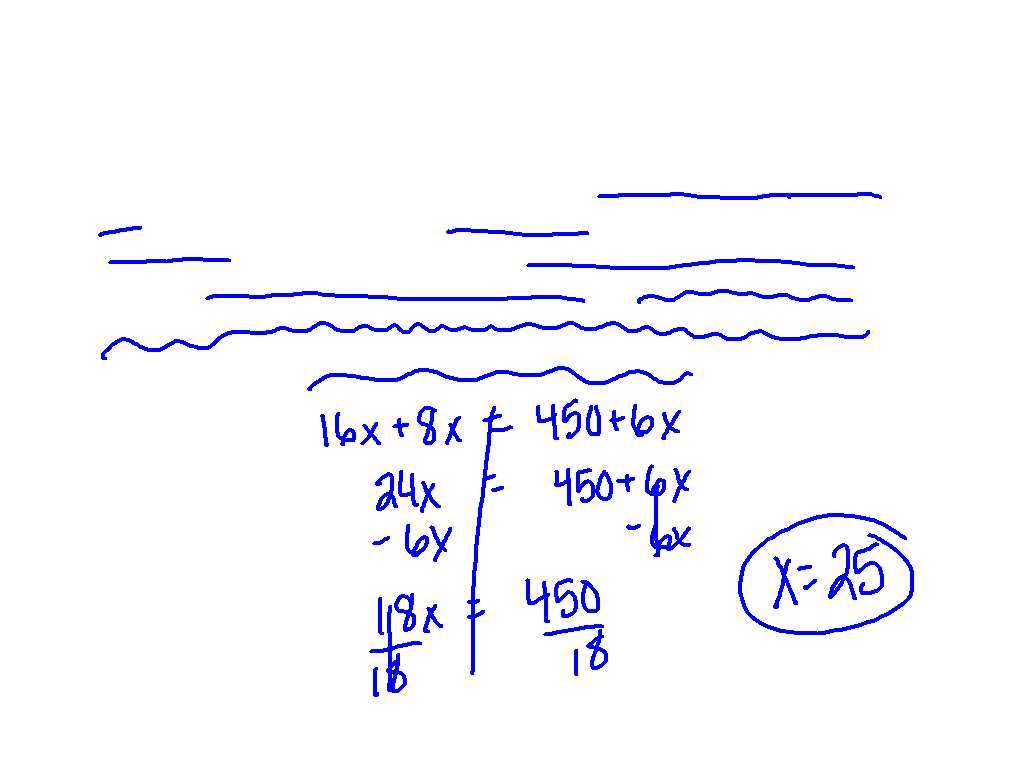 16x + 8x = 450 + 6x
24x = 450 + 6x
- 6x - 6x
18x = 450
18 18
x = 25